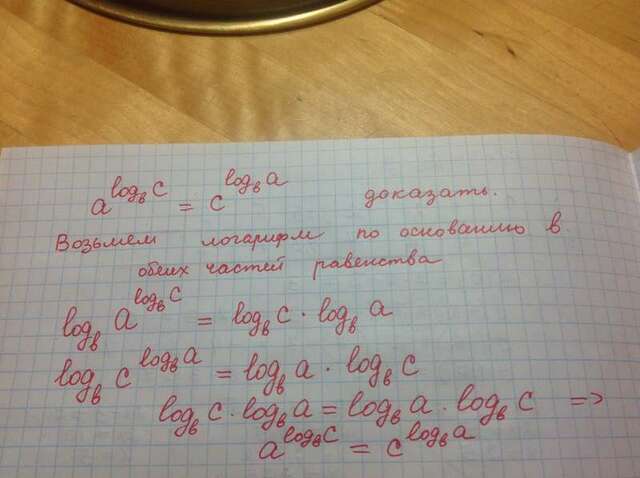 a^{log_в c} = c^{log_в a} доказать.
Возьмем логарифм по основанию в
обеих частей равенства
log_в a^{log_в c} = log_в c · log_в a
log_в c^{log_в a} = log_в a · log_в c
log_в c · log_в a = log_в a · log_в c =>
a^{log_в c} = c^{log_в a}